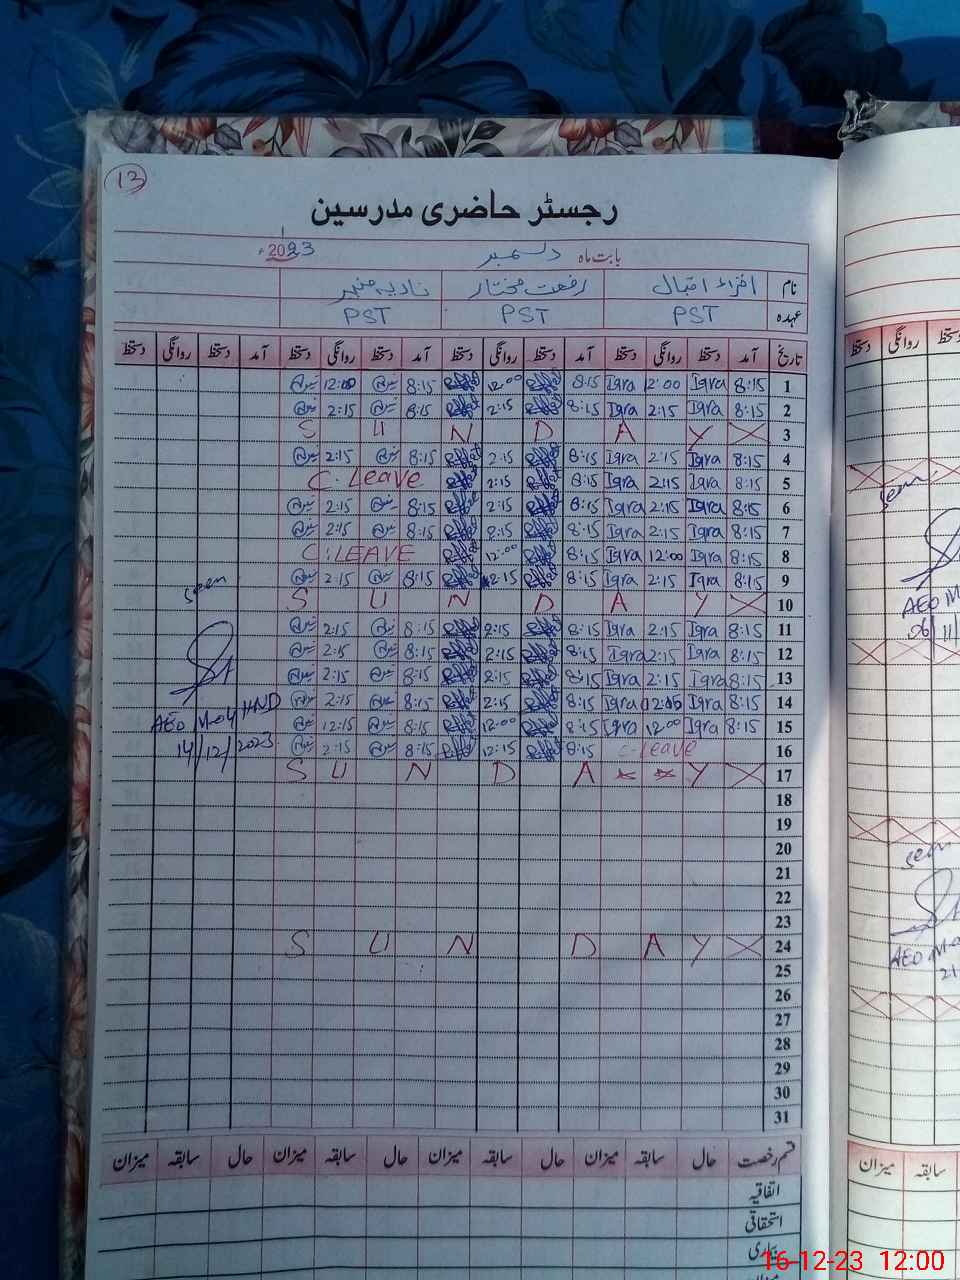 13
رجسٹر حاضری مدرسین
بابت ماہ دسمبر 2023ء
نام اقراء اقبال رفعت مختار نادیہ منیر
عہدہ PST PST PST
تاریخ آمد دستخط روانگی دستخط آمد دستخط روانگی دستخط آمد دستخط روانگی دستخط آمد دستخط روانگی دستخط
1 8:15 Iqra 12:00 Iqra 8:15 12:00 8:15 12:00
2 8:15 Iqra 2:15 Iqra 8:15 2:15 8:15 2:15
3 S U N D A Y
4 8:15 Iqra 2:15 Iqra 8:15 2:15 8:15 2:15
5 8:15 Iqra 2:15 Iqra 8:15 2:15 C.Leave
6 8:15 Iqra 2:15 Iqra 8:15 2:15 8:15 2:15
7 8:15 Iqra 2:15 Iqra 8:15 2:15 8:15 2:15
8 8:15 Iqra 12:00 Iqra 8:15 12:00 C.LEAVE
9 8:15 Iqra 2:15 Iqra 8:15 2:15 8:15 2:15
10 S U N D A Y
11 8:15 Iqra 2:15 Iqra 8:15 2:15 8:15 2:15
12 8:15 Iqra 2:15 Iqra 8:15 2:15 8:15 2:15
13 8:15 Iqra 2:15 Iqra 8:15 2:15 8:15 2:15
14 8:15 Iqra Iqra 8:15 2:15 8:15 2:15
15 8:15 Iqra 12:00 Iqra 8:15 12:00 8:15 12:15
16 C-Leave 8:15 12:15 8:15 2:15
17 S U N D A Y
18
19
20
21
22
23
24 S U N D A Y
25
26
27
28
29
30
31
seen
AEO
14/12/2023
قسم رخصت حال سابقہ میزان حال سابقہ میزان حال سابقہ میزان حال سابقہ میزان
اتفاقیہ
استحقاقی
بیماری
دستخط روانگی
seen
AEO M
06/11
seen
AEO
21
میزان سابقہ
16-12-23 12:00